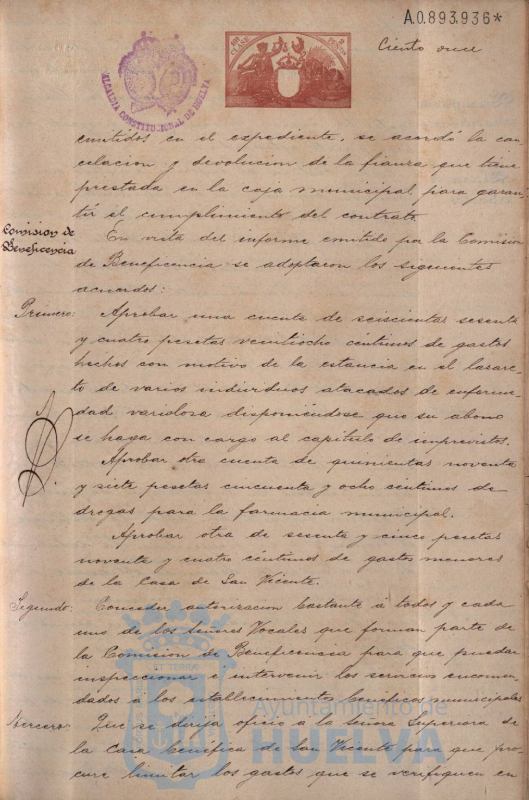 A.0.893.936*
Ciento once
ALCALDIA CONSTITUCIONAL DE HUELVA
CLASE
emitidos en el expediente, se acordó la can-
celacion y devolucion de la fianza que tiene
prestada en la caja municipal, para garan-
tir el cumplimiento del contrato
Comision de
Beneficencia
En vista del informe emitido por la Comision
de Beneficencia se adoptaron los siguientes
acuerdos:
Primero: Aprobar una cuenta de seiscientas sesenta
y cuatro pesetas veintiocho céntimos de gastos
hechos con motivo de la estancia en el lazare-
to de varios individuos atacados de enferme-
dad variolosa disponiéndose que su abono
se haga con cargo al capítulo de imprevistos.
Aprobar otra cuenta de quinientas noventa
y siete pesetas cincuenta y ocho céntimos de
drogas para la farmacia municipal.
Aprobar otra de sesenta y cinco pesetas
noventa y cuatro céntimos de gastos menores
de la Casa de San Vicente.
Segundo: Conceder autorizacion bastante á todos y cada
uno de los Señores Vocales que forman parte de
la Comision de Beneficencia para que puedan
inspeccionar é intervenir los servicios encomen-
dados á los establecimientos benéficos municipales
Tercero: Que se dirija oficio á la Señora Superiora de
la Casa benéfica de San Vicente para que pro-
cure limitar los gastos que se verifiquen en
Ayuntamiento de
HUELVA